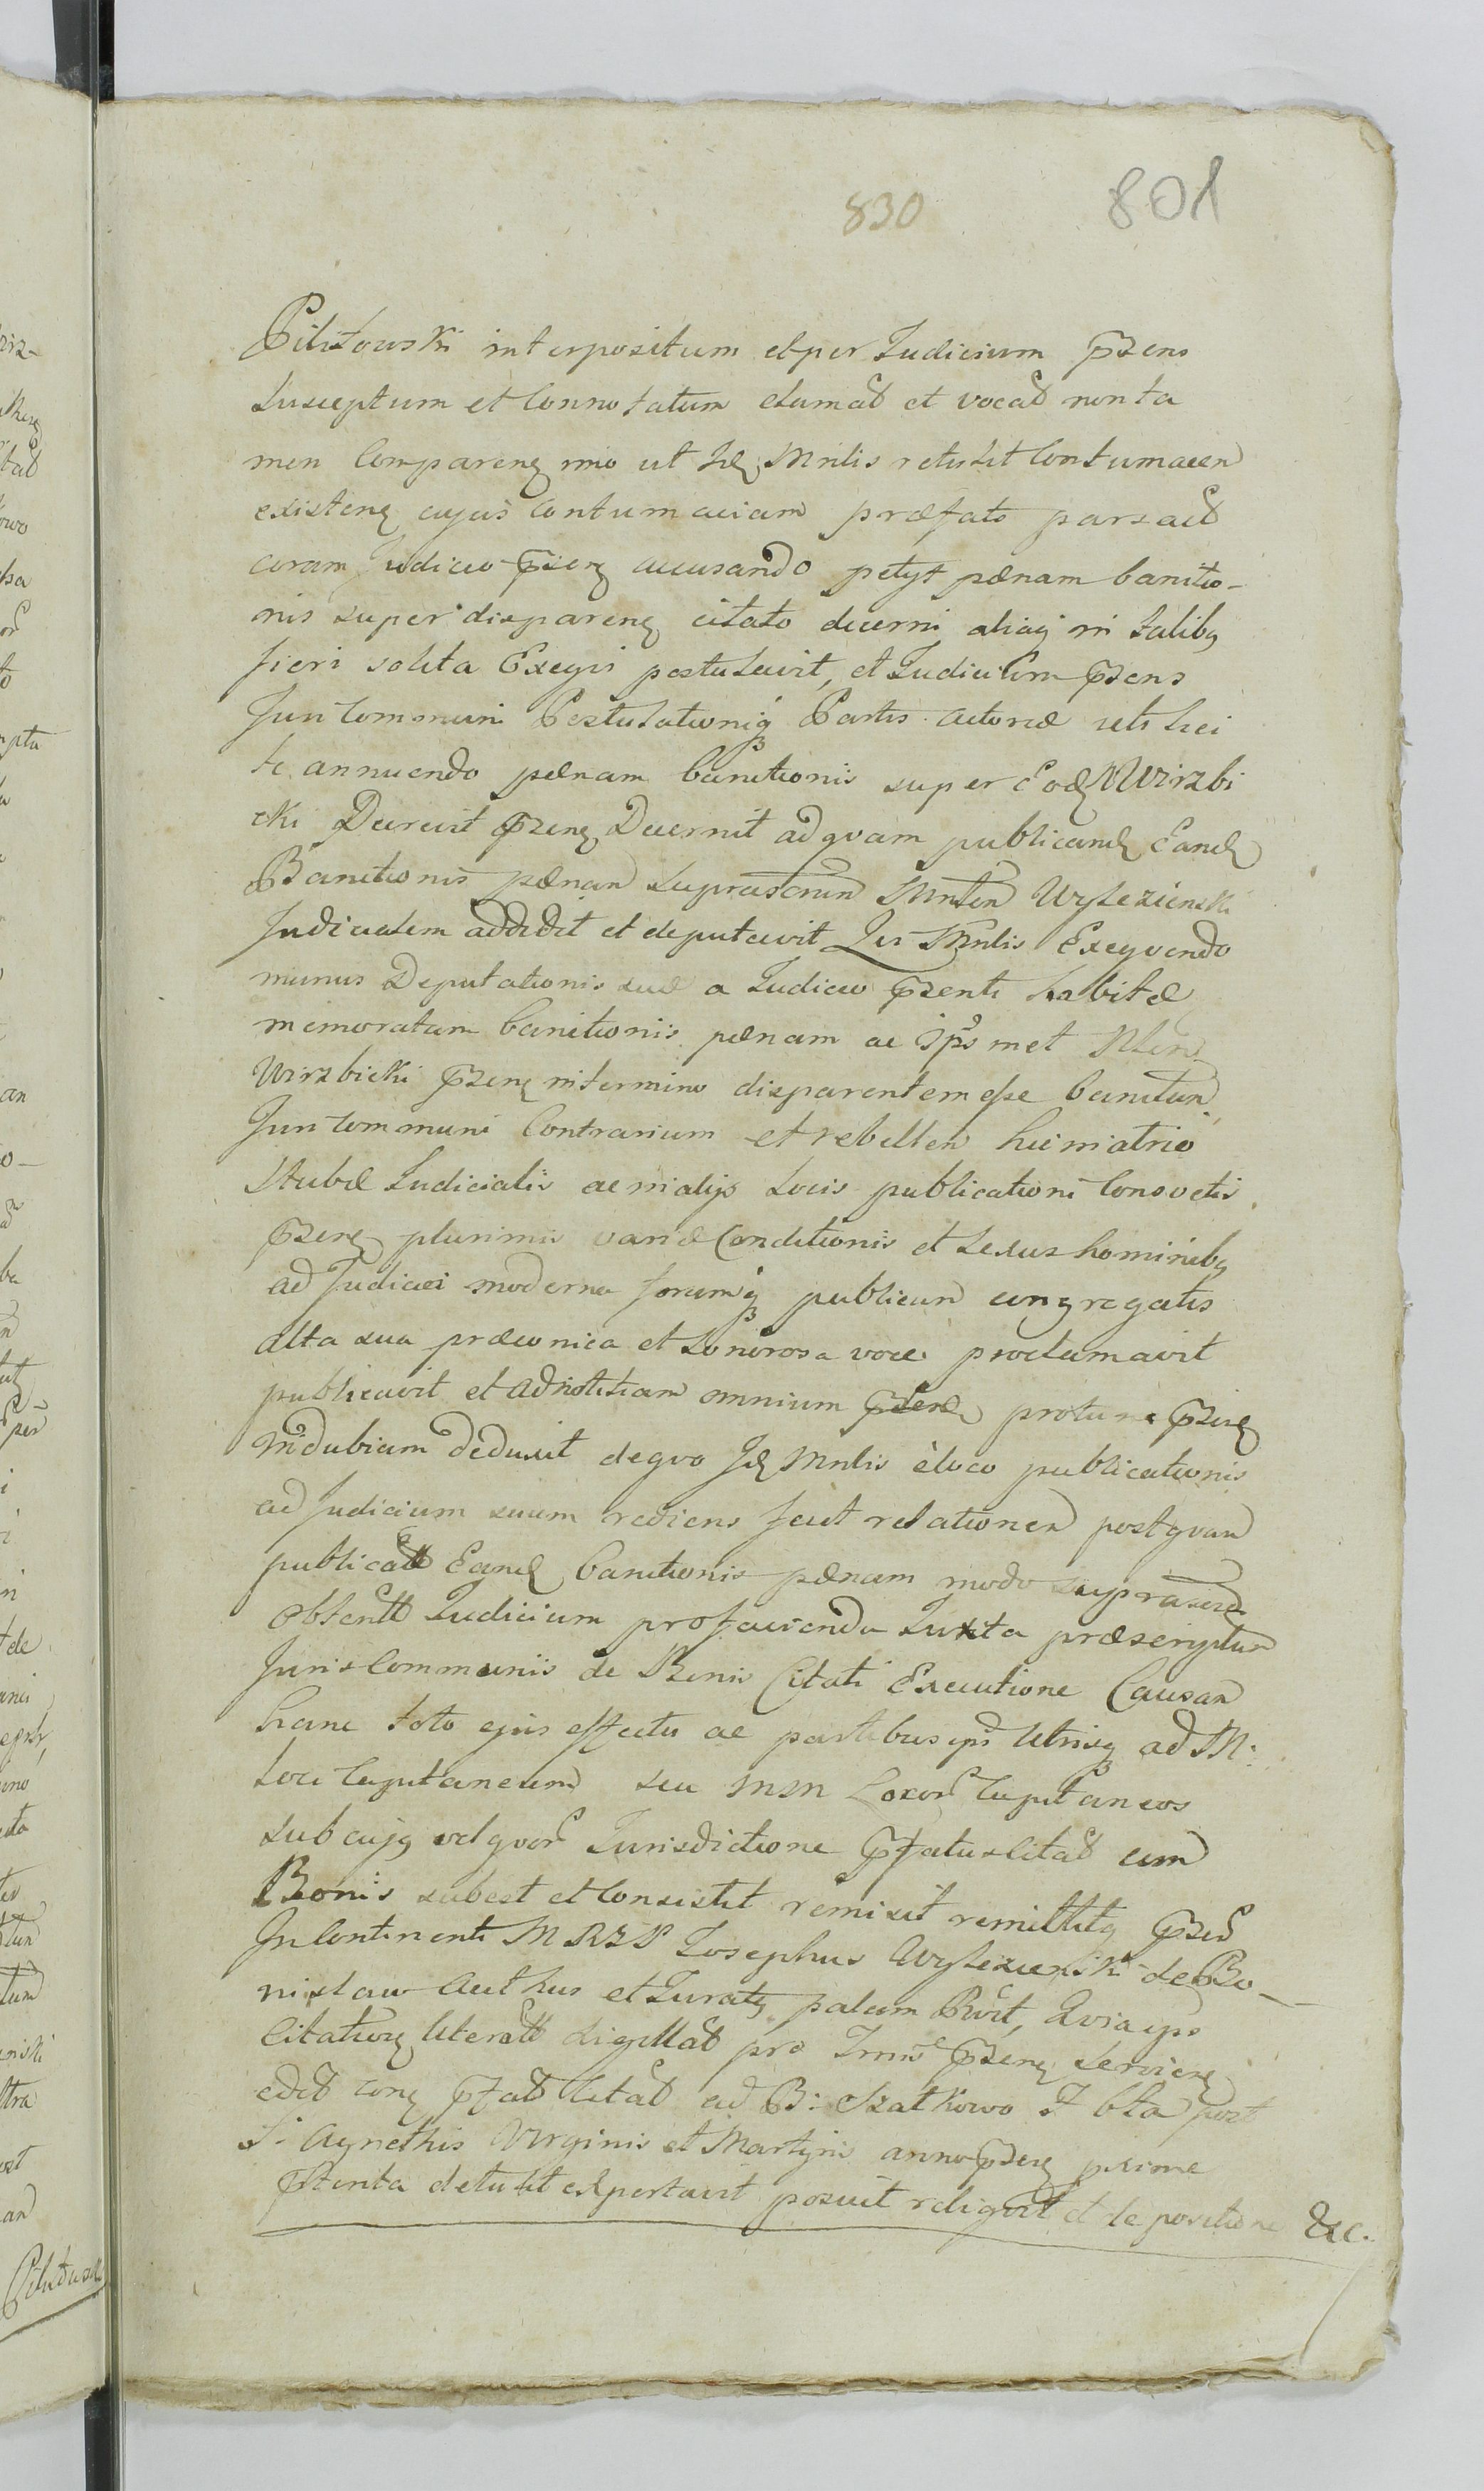 830 801
Pilitowski interpositum et per Iudicium pzens
Susceptum et Connotatum clamat et vocat non ta
men Comparen imo ut Id Mnlis retulit Contumacem
existen cujus contumaciam præfata pars act
coram Iudicio pzen accusando petyt pænam banitio-
nis super disparen citato decerni aliaq in talibq
fieri solita Exequi postulavit, et Iudicium pzens
Juri Communi Postulationiq Partis actoreæ uti lici
tæ annuendo pænam banitionis super Eod N Wirzbi
cki Decrevit pzenq Decernit ad quam publicand Eand
Banitionis pænam Suprascrium Mnlem Wylezienski
Judicialem addidit et deputavit Qui Mnlis Exequendo
munus Deputationis suæ a Iudicio pzenti habitæ
memoratam banitionis pænam ac ipsmet Nlem
Wirzbicki pzen in termino disparentem esse banitum
Juri Communi Contrarium et rebellem hic in atrio
Stubæ Iudicialis ac in alijs Locis publicationi Consvetis
pzen plurimis variæ Conditionis et Sexus hominibq
ad Judicii moderna forumq publicum congregatis
alta sua præconica et Sonorosa voce proclamavit
publicavit et ad notitiam omnium protunc pzen
indubiam deduxit de quo Id Mnlis e loco publicationis
ad Judicium suum rediens fecit relationem postquam
publicatt Eand banitionis pænam modo suprascri
obtentt Iudicium pro facienda Iuxta præscriptum
Juris Communis de Bonis Citati Executione Causam
hanc toto ejus effectu ac partibus ips utrisq ad M:
Loci Capitaneum seu MM Locor Capitaneos
sub cujq vel quor Iurisdictione pfatus Citat cum
Bonis subest et Consistit remisit remittitq pzen
In Continenti MRZP Iosephus Wylezienski de Bo-
nislaw Authus et Iuratq palam Rvit, Quia ips
Citationq literatt sigillat pro Tmno pzen Servien
edit conq pfat Citat ad B: Szatkowo F bta post
S: Agnethis Virginis et Martyris anno pzen pxime
pterita detulit exportavit posuit reliquit et de positione &c.